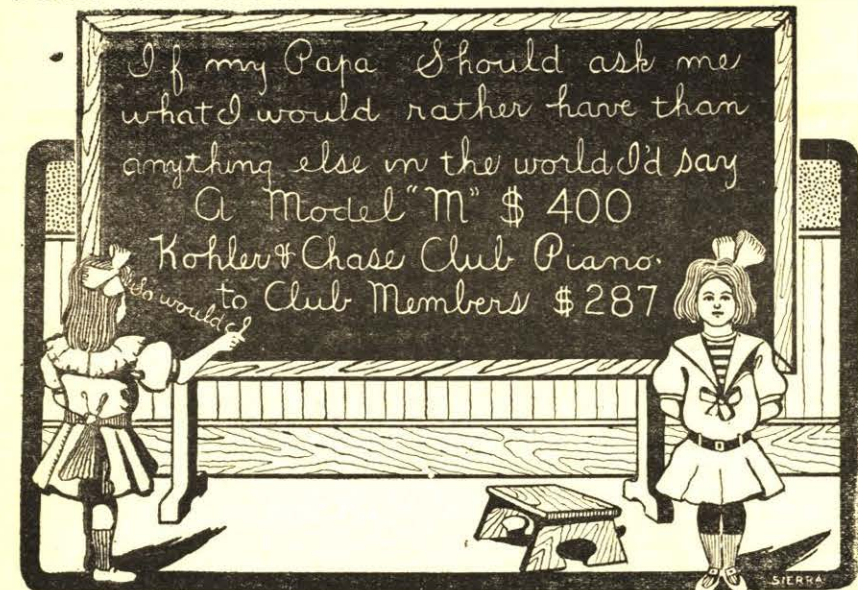 If my Papa Should ask me
what I would rather have than
anything else in the world I'd say
A Model "M" $ 400
Kohler & Chase Club Piano.
to Club Members $287
So would I
SIERRA